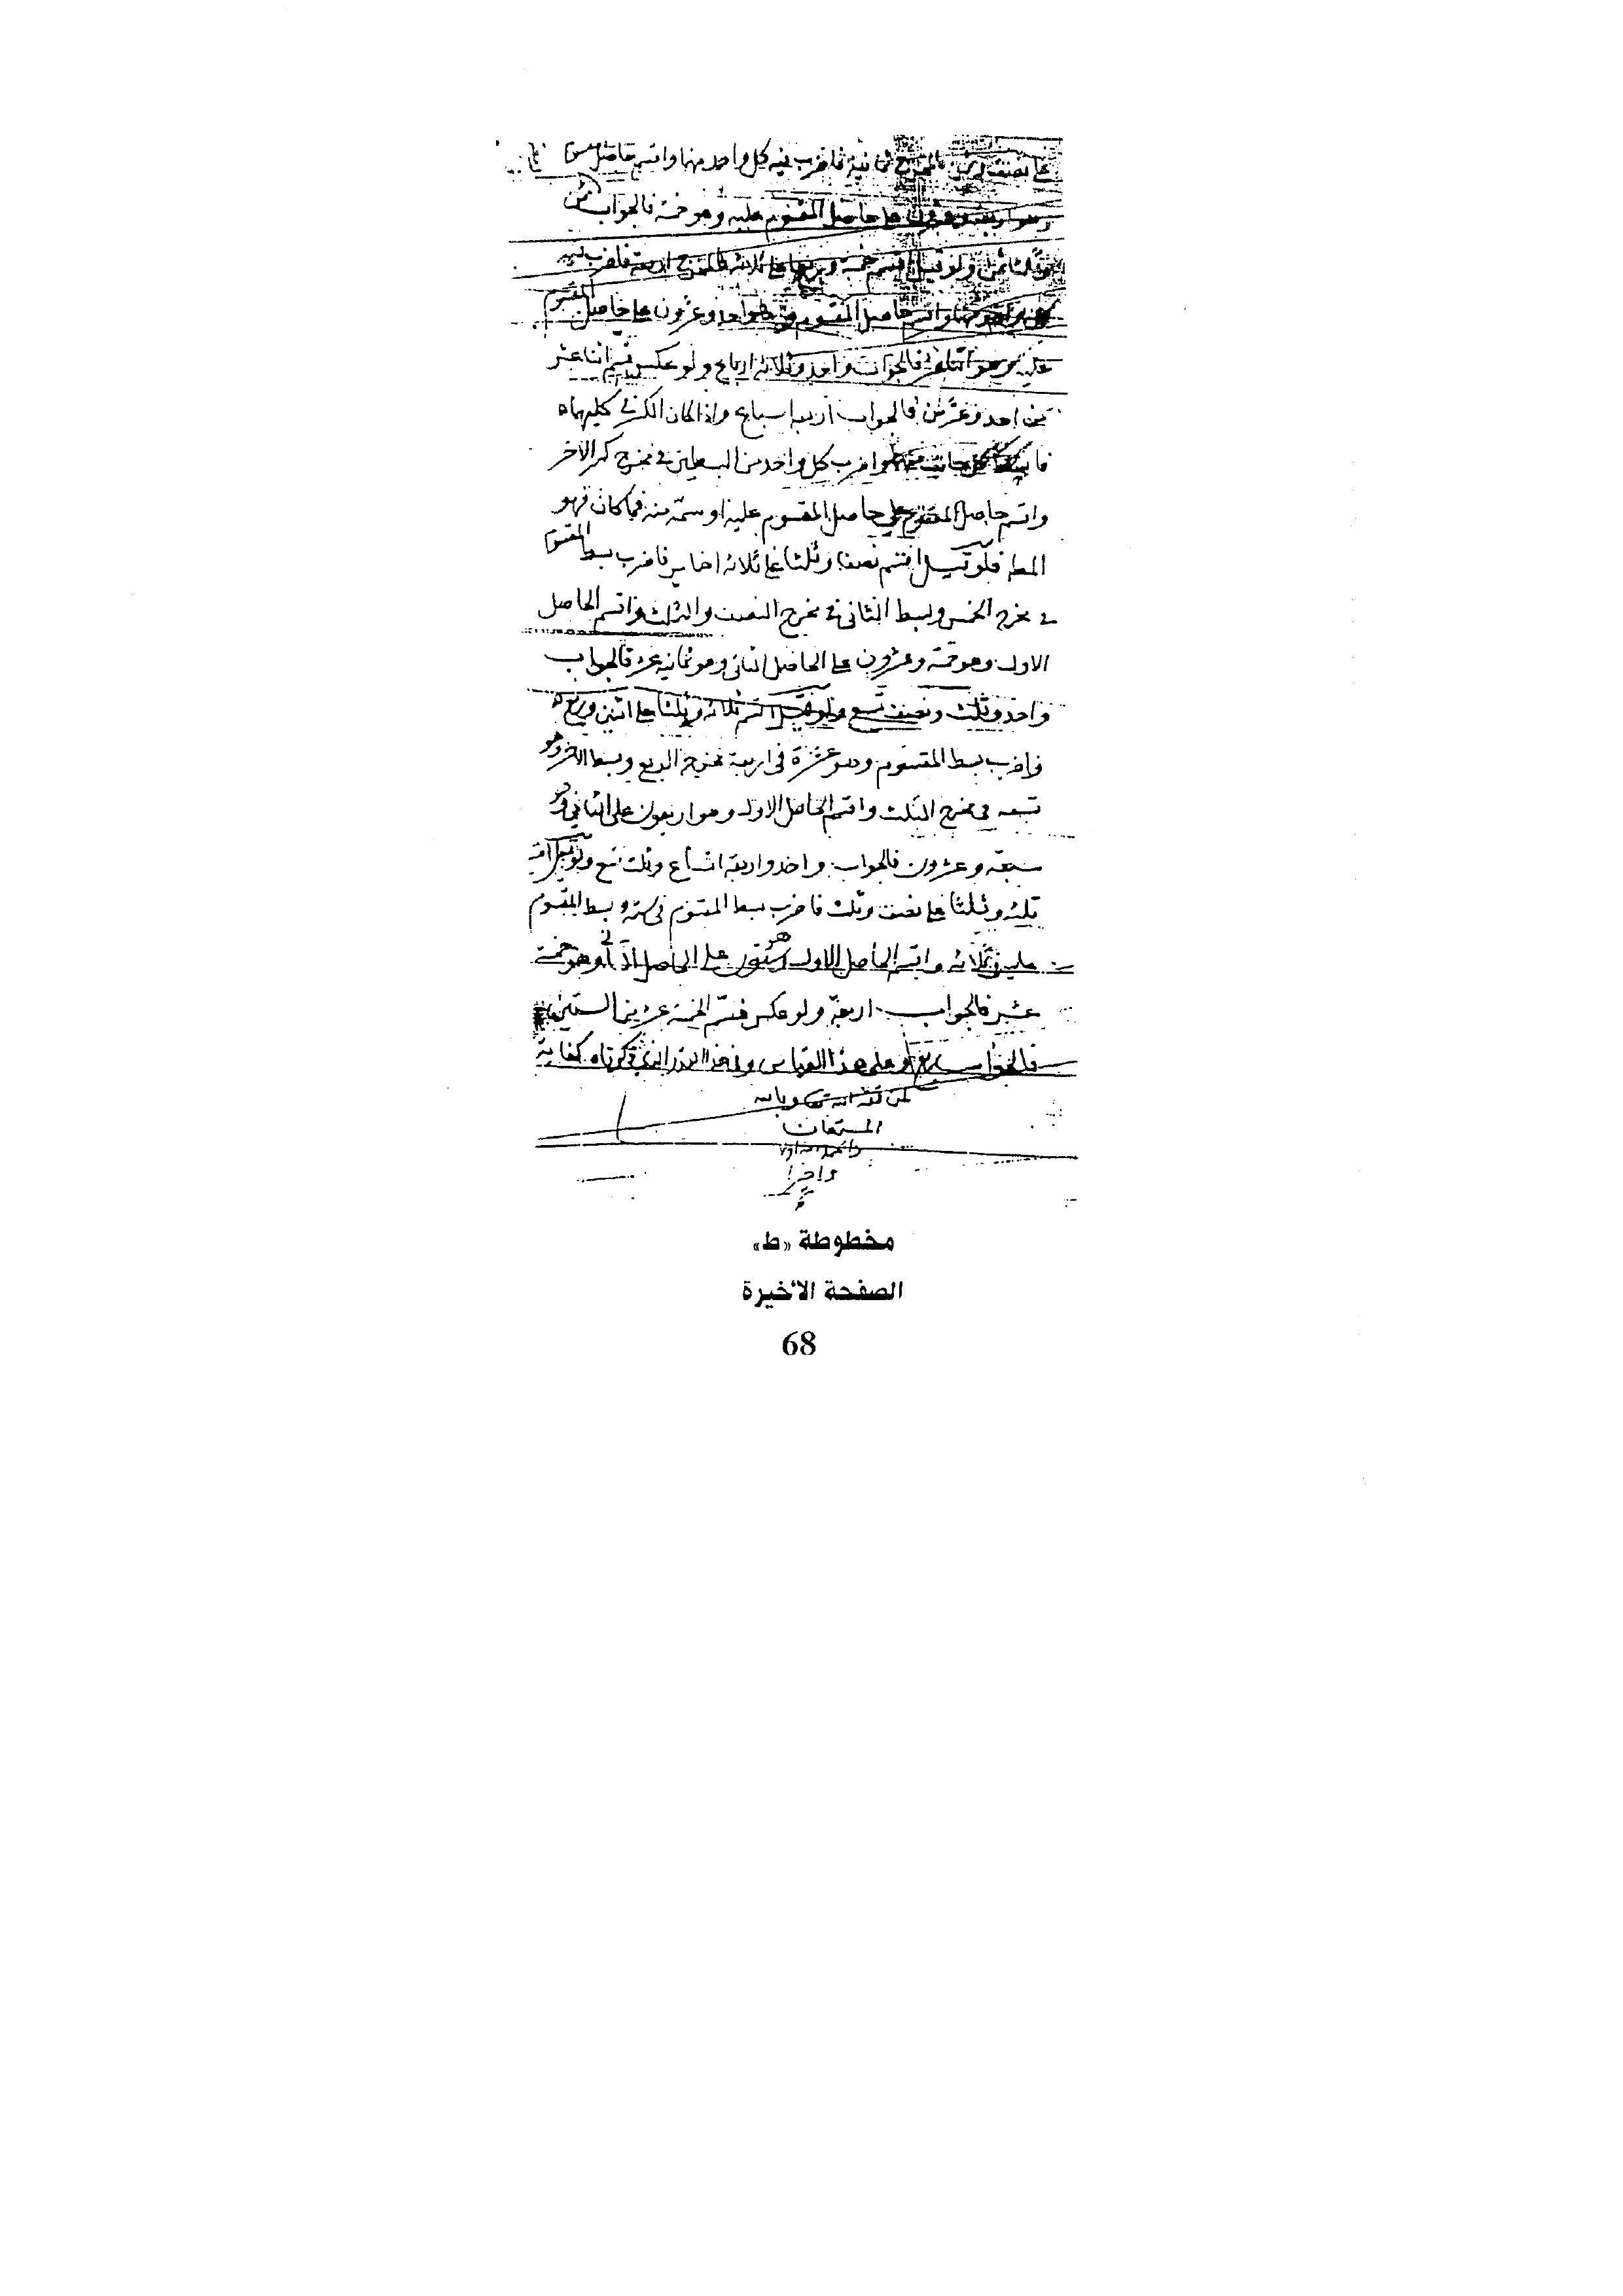 على نصف وثمن فالمخرج ثمانية فاضرب فيه كل واحد منهما واقسم حاصل
وهو اربعة وعشرون على حاصل المقسوم عليه وهو خمسة فالجواب
ولو قيل اقسم خمسة وربعا على ثلاثة فالمخرج اربعة فاضرب فيه
كل واحد منهما واقسم حاصل المقسوم وهو واحد وعشرون على حاصل المقسوم
عليه وهو اثنا عشر فالجواب واحد وثلاثة ارباع ولو عكس فسم اثنا عشر
من احد وعشرين فالجواب اربعة اسباع واذا كان الكسر في كليهما
فابسط كل جانب منهما واضرب كل واحد من البسطين في مخرج كسر الاخر
واقسم حاصل المقسوم على حاصل المقسوم عليه او سمه منه فما كان فهو
المط فلو قيل اقسم نصفا وثلثا على ثلاثة اخماس فاضرب بسط المقسوم
في مخرج الخمس وبسط الثاني في مخرج النصف والثلث واقسم الحاصل
الاول وهو خمسة وعشرون على الحاصل الثاني وهو ثمانية عشر فالجواب
واحد وثلث ونصف تسع ولو قيل اقسم ثلاثة وثلثا على اثنين وربع
فاضرب بسط المقسوم وهو عشرة في اربعة مخرج الربع وبسط الاخر وهو
تسعه في مخرج الثلث واقسم الحاصل الاول وهو اربعون على الثاني وهو
سبعة وعشرون فالجواب واحد واربعة اتساع وثلث تسع ولو قيل اقسم
ثلثه وثلثا على نصف وثلث فاضرب بسط المقسوم في ستة وبسط المقسوم
عليه في ثلاثه واقسم الحاصل الاول وهو ستون على الحاصل الثاني وهو خمسة
عشر فالجواب اربعة ولو عكس فسم الخمسة عشر من الستين
فالجواب ربع وعلى هذا القياس وفي هذا القدر الذي ذكرناه كفاية
لمن وفقه الله تعالى وبالله
المستعان
والحمد لله اولا
واخرا
مخطوطة «ط»
الصفحة الأخيرة
68